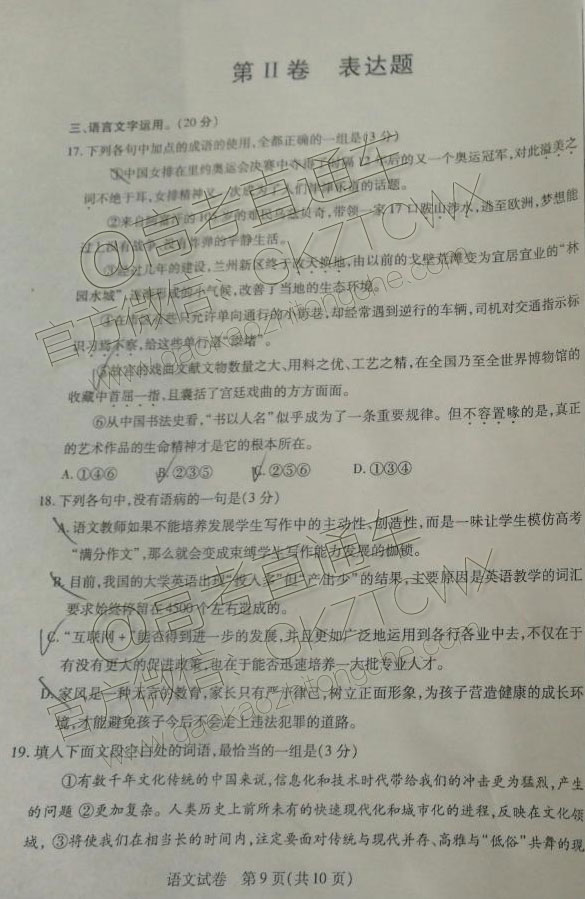 第 II 卷 表达题
三、语言文字运用。(20 分)
17. 下列各句中加点的成语的使用,全都正确的一组是(3 分)
①中国女排在里约奥运会决赛中夺得了时隔 12 年后的又一个奥运冠军,对此溢美之
词不绝于耳,女排精神又一次成为了人们津津乐道的话题。
②来自 的 10 岁的难民 贝奇,带领一家 17 口跋山涉水,逃至欧洲,梦想能
过上没有战争、没有炸弹的平静生活。
③经过几年的建设,兰州新区终于改天换地,由以前的戈壁荒滩变为宜居宜业的“林
园水城”,逐渐形成的小气候,改善了当地的生态环境。
④在 只允许单向通行的小街巷,却经常遇到逆行的车辆,司机对交通指示标
识习焉不察,给这些单行道“添堵”。
⑤故宫的戏曲文献文物数量之大、用料之优、工艺之精,在全国乃至全世界博物馆的
收藏中首屈一指,且囊括了宫廷戏曲的方方面面。
⑥从中国书法史看,“书以人名”似乎成为了一条重要规律。但不容置喙的是,真正
的艺术作品的生命精神才是它的根本所在。
A. ①④⑥ B. ②③⑤ C. ②⑤⑥ D. ①③④
18. 下列各句中,没有语病的一句是(3 分)
A. 语文教师如果不能培养发展学生写作中的主动性、创造性,而是一味让学生模仿高考
“满分作文”,那么就会变成束缚学生写作能力发展的枷锁。
B. 目前,我国的大学英语出现“投入多”但“产出少”的结果,主要原因是英语教学的词汇
要求始终停留在4500个左右造成的。
C. “互联网+”能否得到进一步的发展,并且更如广泛地运用到各行各业中去,不仅在于
有没有更大的促进政策,也在于能否迅速培养一大批专业人才。
D. 家风是一种无言的教育,家长只有严于律己,树立正面形象,为孩子营造健康的成长环
境,才能避免孩子今后不会走上违法犯罪的道路。
19. 填入下面文段空白处的词语,最恰当的一组是(3 分)
①有数千年文化传统的中国来说,信息化和技术时代带给我们的冲击更为猛烈,产生
的问题 ②更加复杂。人类历史上前所未有的快速现代化和城市化的进程,反映在文化领
域, ③将使我们在相当长的时间内,注定要面对传统与现代并存、高雅与“低俗”共舞的现
语文试卷 第 9 页(共 10 页)
@高考直通车
官方微信:OKZTCWX
www.gaokaozhitongche.com
@高考直通车
官方微信:OKZTCWX
www.gaokaozhitongche.com